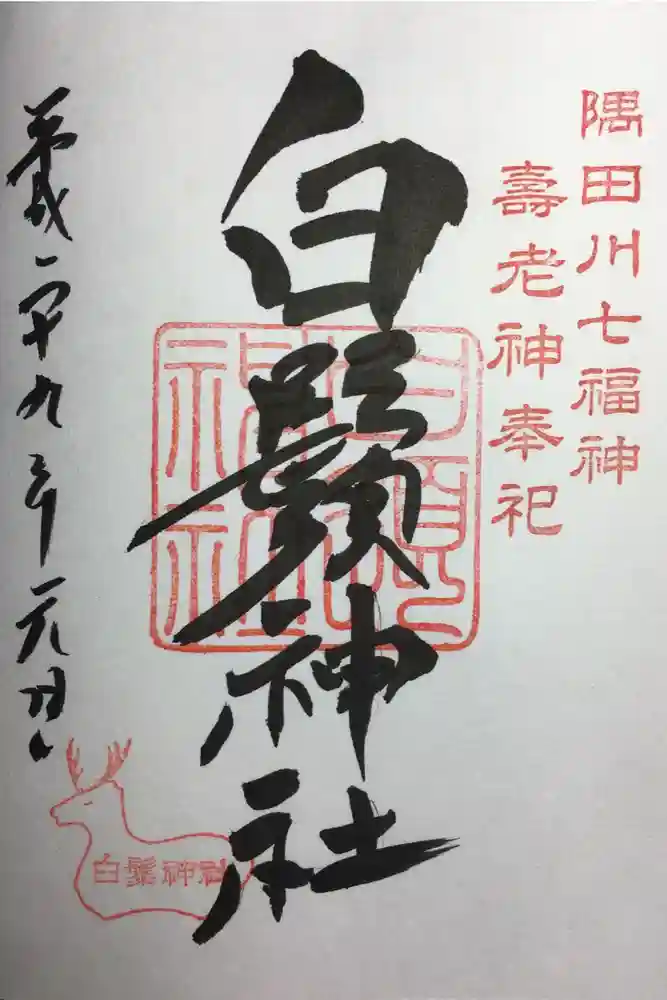 隅田川七福神
壽老神奉祀
白鬚神社
白須神社
平成二十九年元旦
白鬚神社